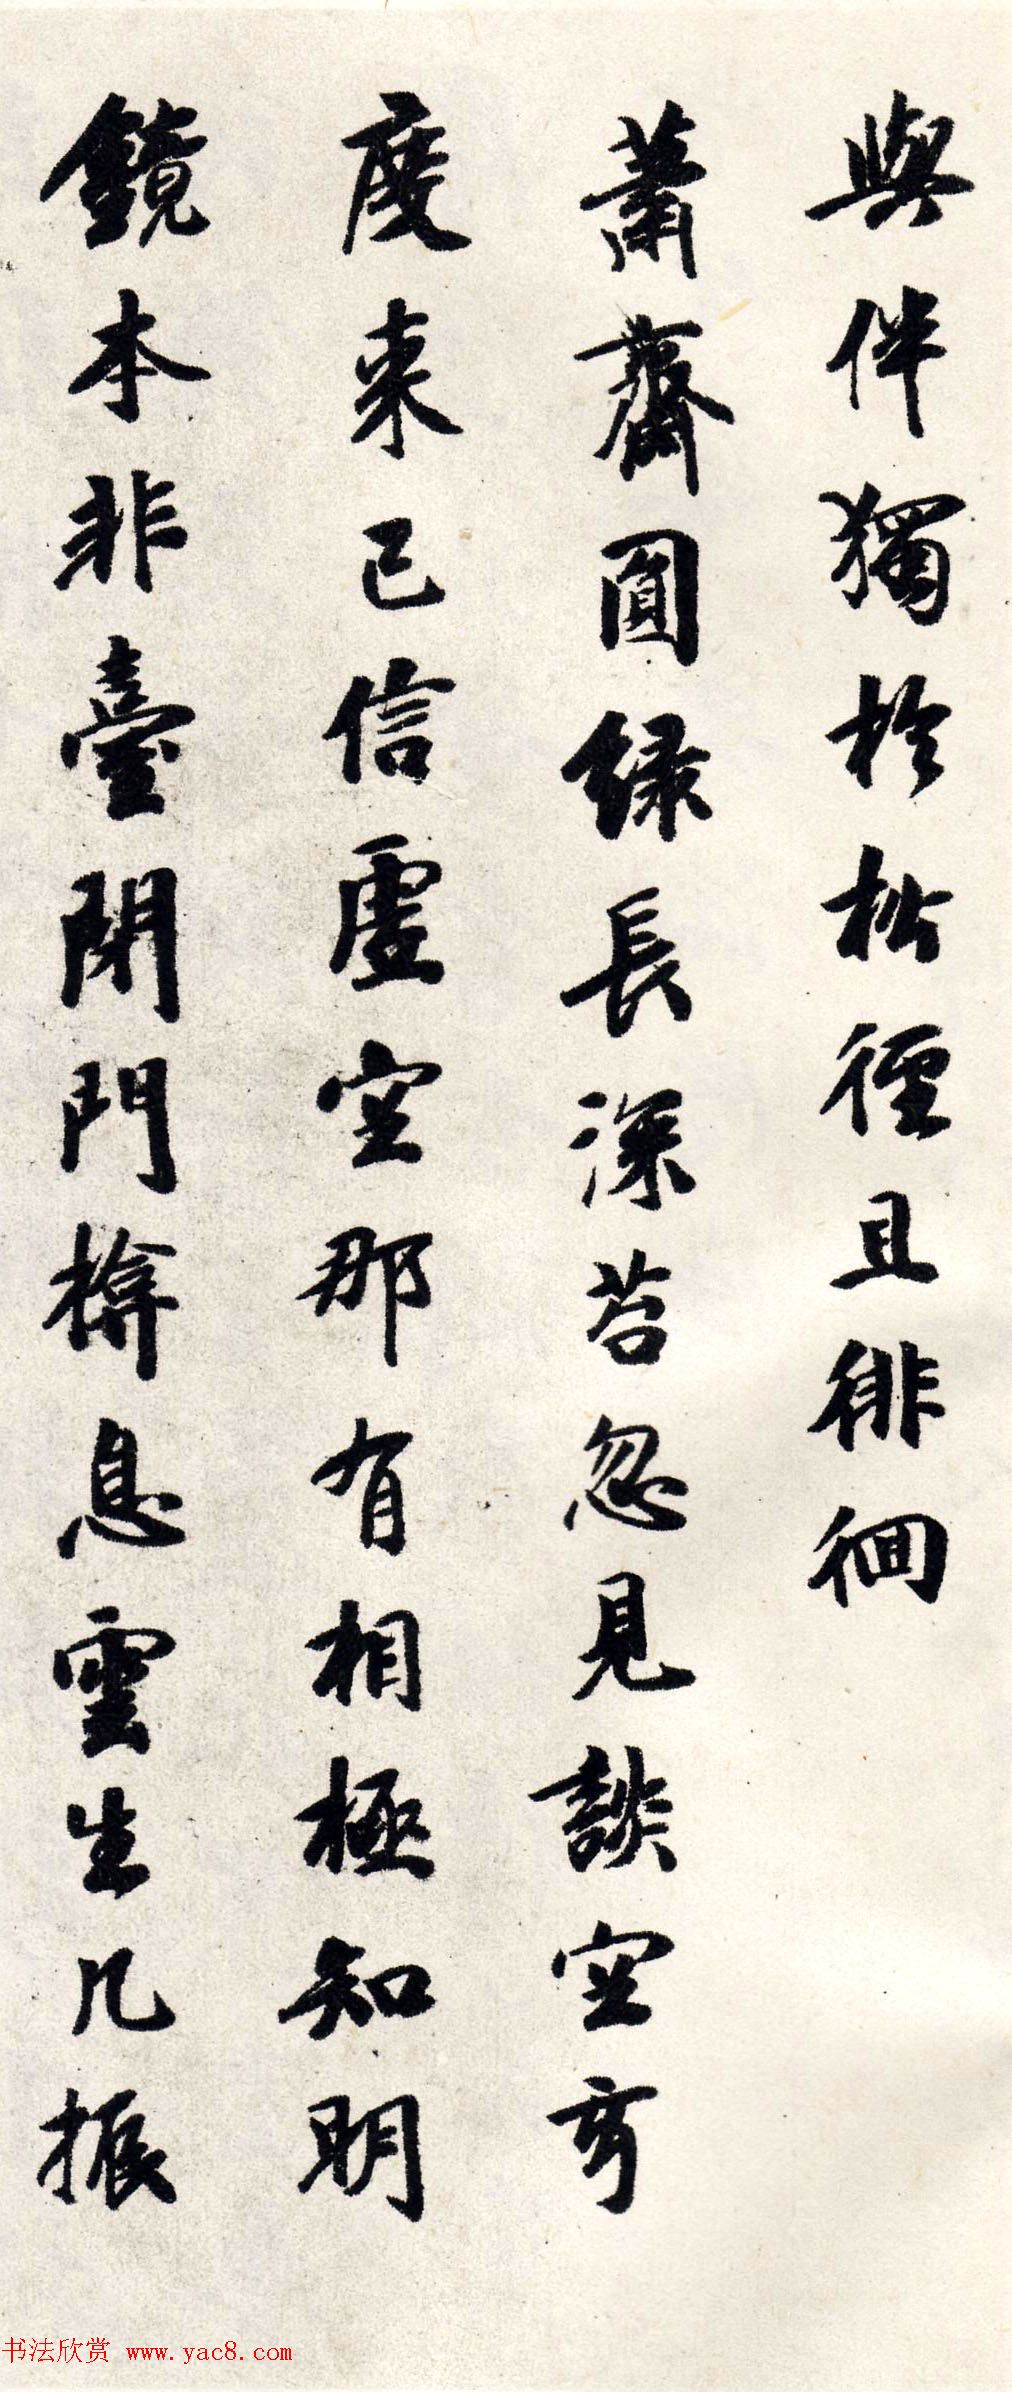 與伴獨於松徑且徘徊
蕭齋圓綠長深苔忽見談空彥
度来已信虛空那有相極知明
鏡本非臺閉門橼息雲生几振
书法欣赏 www.yac8.com